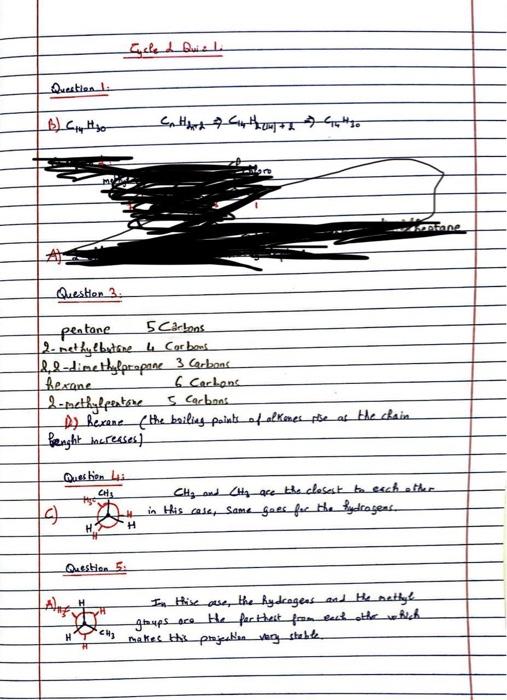 Cycle 2 Quiz 1:
Question 1:
B) C14 H30 Cn H2n+2 ⇒ C14 H2(14)+2 ⇒ C14 H30
A)
Question 3:
pentane 5 Carbons
2-methylbutane 4 Carbons
2,2-dimethylpropane 3 Carbons
hexane 6 Carbons
2-methylpentane 5 Carbons
D) hexane (the boiling points of alkanes rise as the chain
lenght increases)
Question 4:
H3C CH3 CH3 and CH3 are the closest to each other
C) H H H H in this case, same goes for the hydrogens.
Question 5:
A) H3C H H In this case, the hydrogens and the methyl
groups are the farthest from each other which
H H CH3 makes this projection very stable.